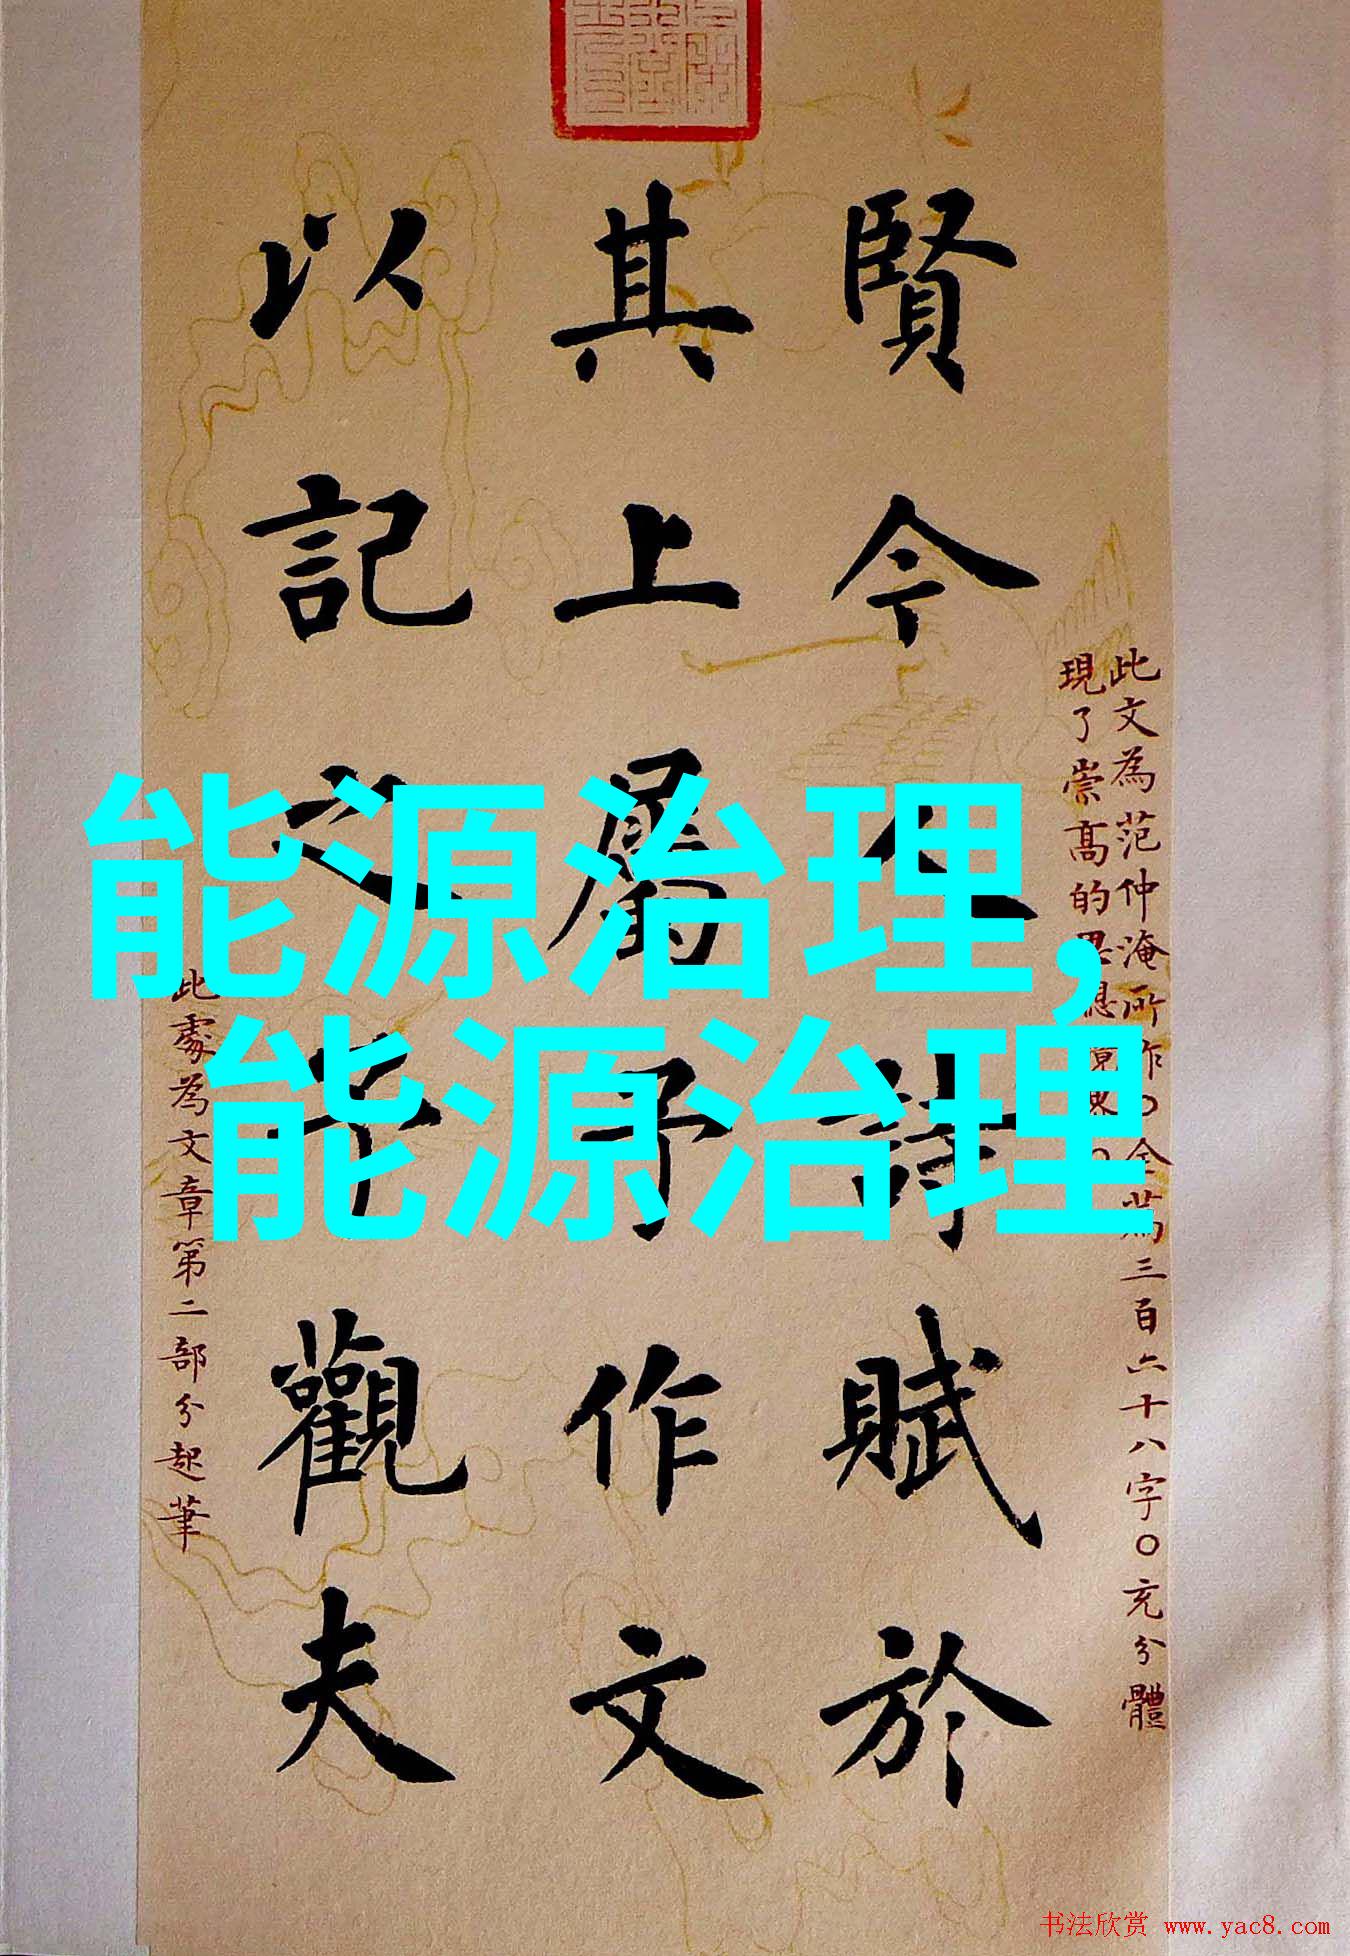 此文為范仲淹所作〇全篇三百六十八字〇充分體
現了崇高的
賢今人詩賦於
其上屬予作文
以記之予觀夫
此處為文章第二部分起筆
能源治理,
能源治理
书法欣赏 www.yac8.com